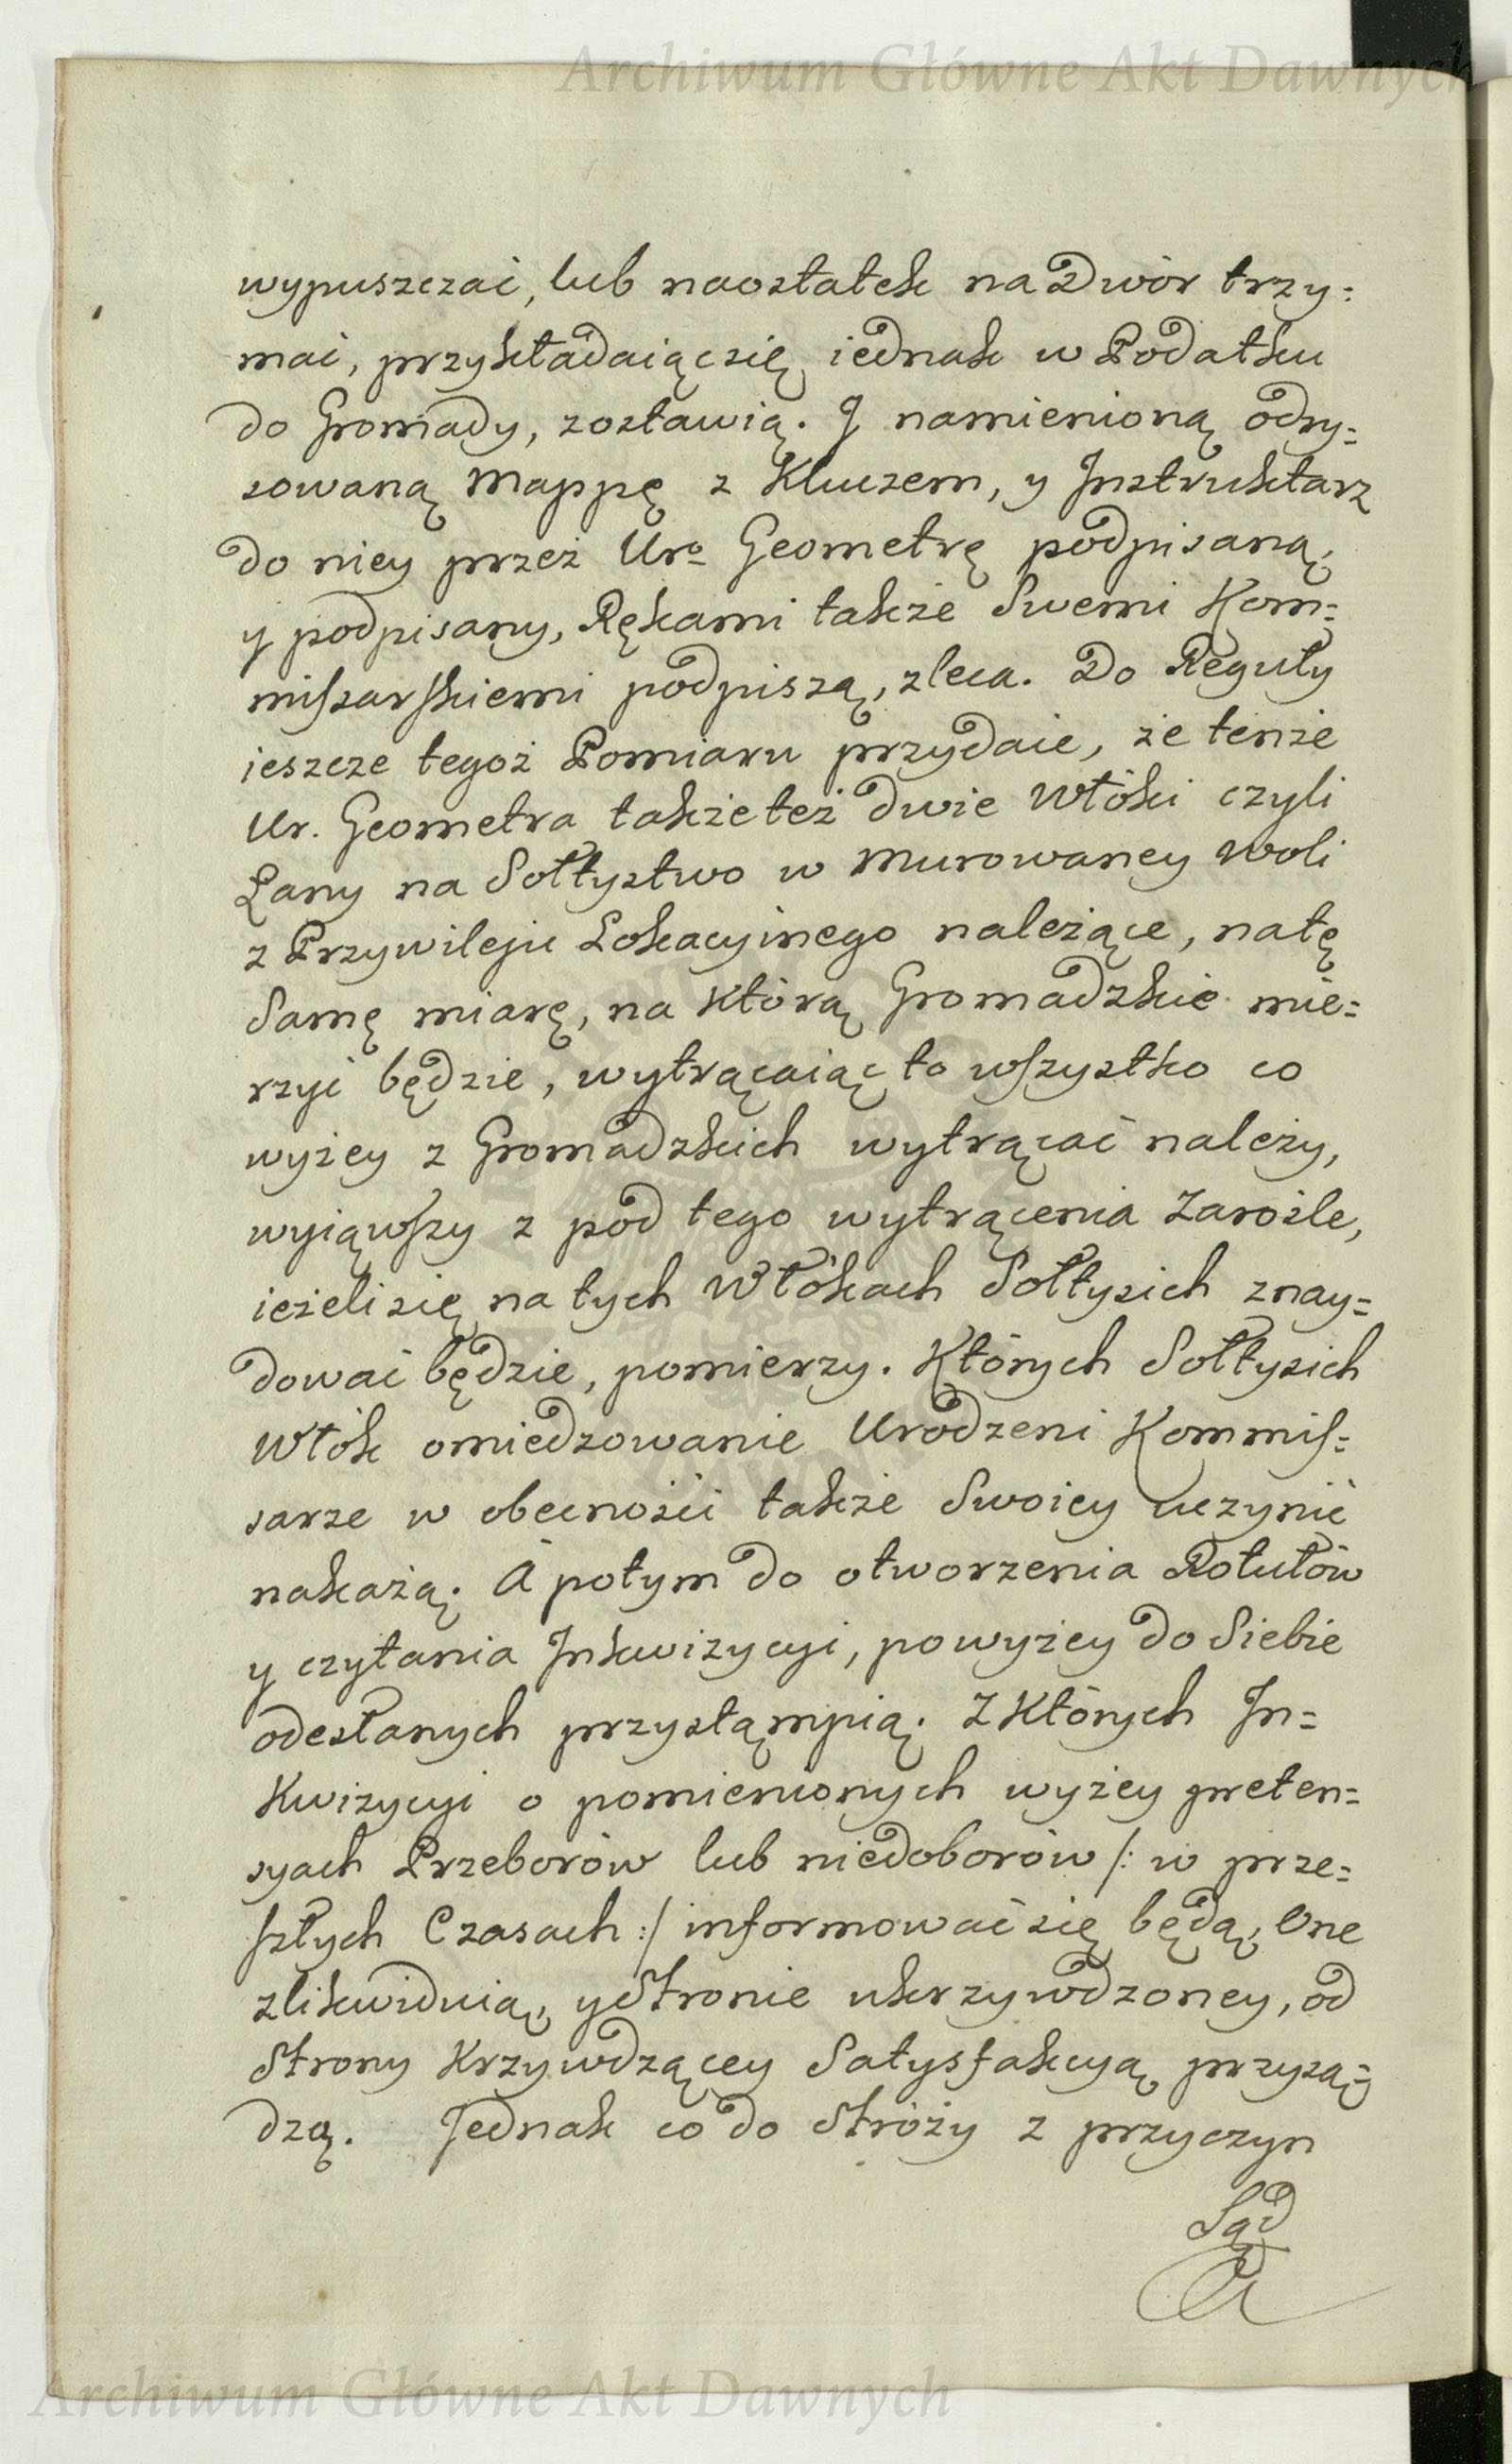 Archiwum Główne Akt Dawnych
wypuszczać, lub naostatek na Dwór trzy=
mać, przykładaiąc się iednak w Podatku
do Gromady, zostawią. J namienioną odry=
sowaną Mappę z Kluczem, y Jnstruktarz
do niey przez Uro Geometrę podpisaną,
y podpisany, Rękami także Swemi Kom=
missarskiemi podpiszą, zleca. Do Reguły
ieszcze tegoż Pomiaru przydaie, że tenże
Ur. Geometra także też dwie Włóki czyli
Łany na Sołtystwo w Murowaney Woli
z Przywileju Lokacyinego należące, na tę
Samę miarę, na którą Gromadzkie mie=
rzyć będzie, wytrącaiąc to wszystko co
wyżey z Gromadzkich wytrącać należy,
wyiąwszy z pod tego wytrącenia Zarośle,
ieżeli się na tych Włókach Sołtysich znay=
dować będzie, pomierzy. Których Sołtysich
Włók omiedzowanie Urodzeni Kommis=
sarze w obecności także Swoiey uczynić
nakażą. A potym do otworzenia Rotułów
y czytania Jnkwizycyi, powyżey do Siebie
odesłanych przystąmpią. Z Których Jn=
Kwizycyi o pomienionych wyżey preten=
syach Przeborów lub niedoborów /: w prze=
szłych Czasach :/ informować się będą, One
zlikwiduią, y Stronie ukrzywdzoney, od
Strony Krzywdzącey Satysfakcyą przysą=
dzą. Jednak co do Stróży z przyczyn
Sąd
Archiwum Główne Akt Dawnych